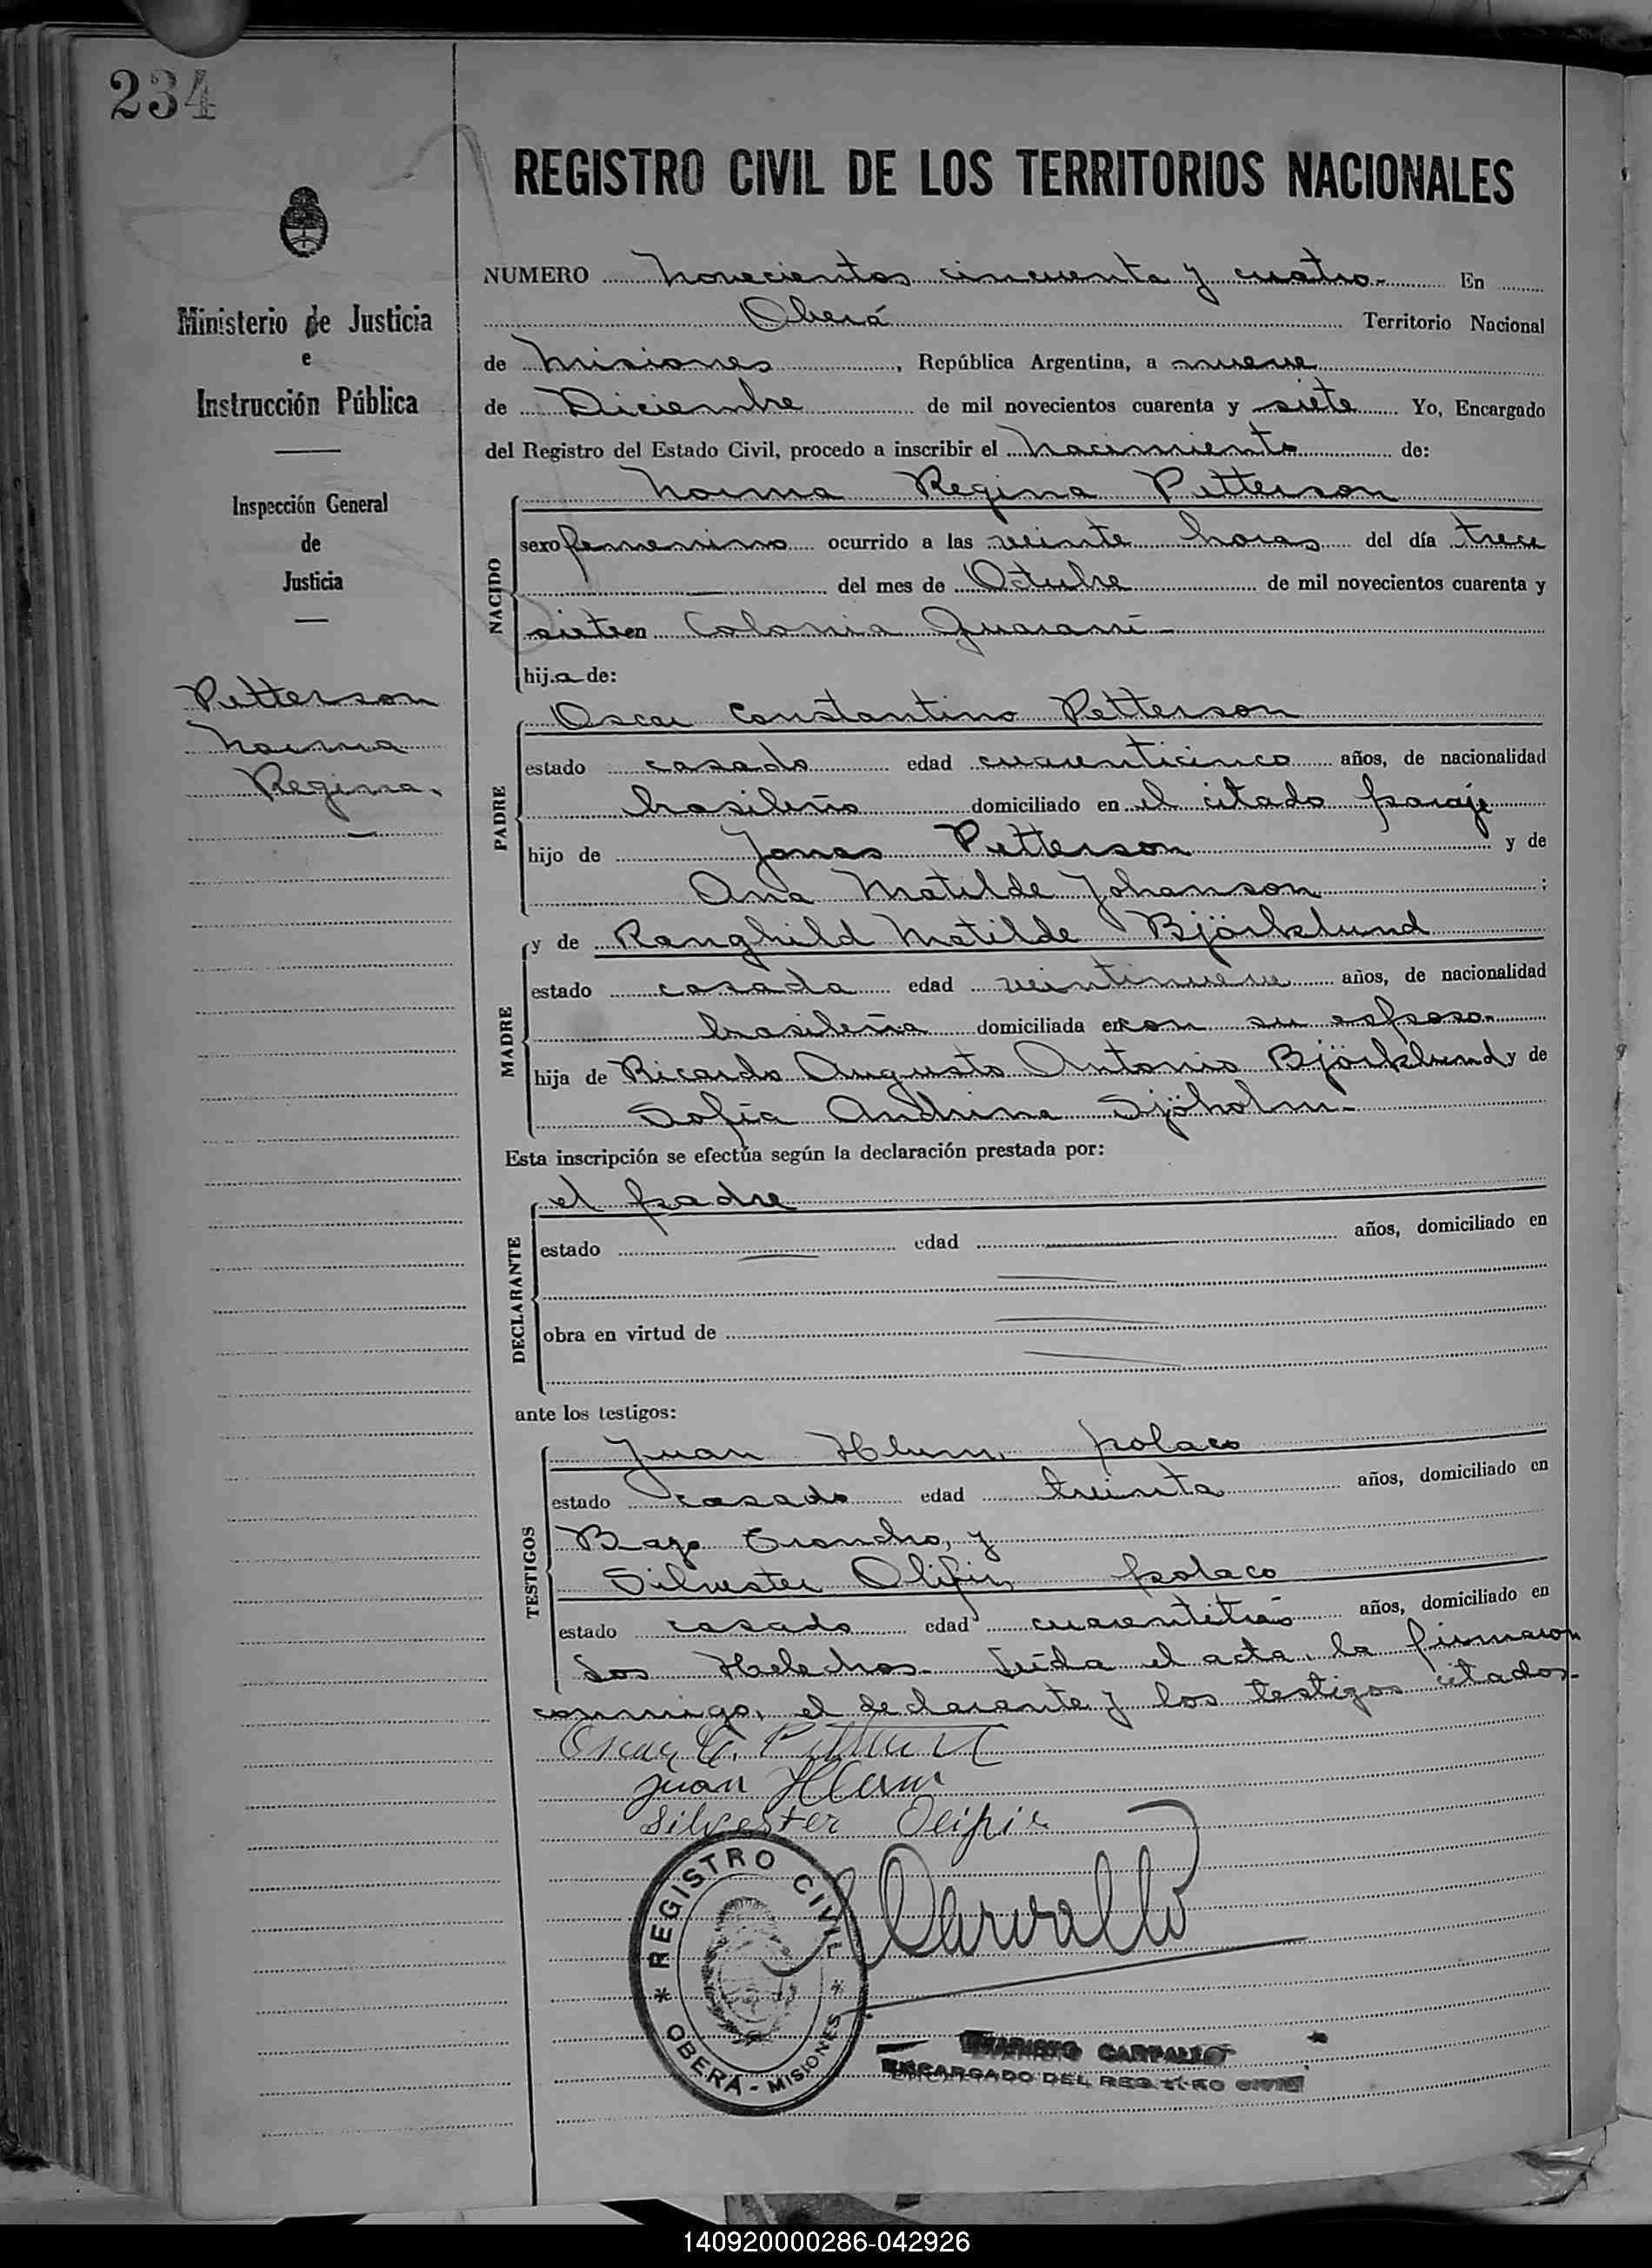 234
REGISTRO CIVIL DE LOS TERRITORIOS NACIONALES
Ministerio de Justicia
e
Instrucción Pública
Inspección General
de
Justicia
Petterson
Norma
Regina.
NUMERO novecientos cincuenta y cuatro.- En
Oberá Territorio Nacional
de Misiones, República Argentina, a nueve
de Diciembre de mil novecientos cuarenta y siete Yo, Encargado
del Registro del Estado Civil, procedo a inscribir el nacimiento de:
NACIDO
Norma Regina Petterson
sexo femenino ocurrido a las veinte horas del día trece
del mes de Octubre de mil novecientos cuarenta y
siete en Colonia Guaraní-
hija de:
PADRE
Oscar Constantino Petterson
estado casado edad cuarenticinco años, de nacionalidad
brasileño domiciliado en el citado paraje
hijo de Jonas Petterson y de
Ana Matilde Johanson;
MADRE
y de Ranghild Matilde Björklund
estado casada edad veintinueve años, de nacionalidad
brasileña domiciliada en con su esposo.-
hija de Ricardo Augusto Antonio Björklund y de
Sofía Andrina Sjöholm-
Esta inscripción se efectúa según la declaración prestada por:
DECLARANTE
el padre
estado edad años, domiciliado en
obra en virtud de
ante los testigos:
TESTIGOS
Juan Hlum, polaco
estado casado edad treinta años, domiciliado en
y
Silvester Olipir, polaco
estado casado edad cuarentitrés años, domiciliado en
Los Helechos- Leída el acta, la firmaron
conmigo, el declarante y los testigos citados-
Oscar C.
Juan
Silvester
Carvallo
REGISTRO CIVIL
OBERÁ - MISIONES
CARVALLO
ENCARGADO DEL REGISTRO CIVIL
140920000286-042926